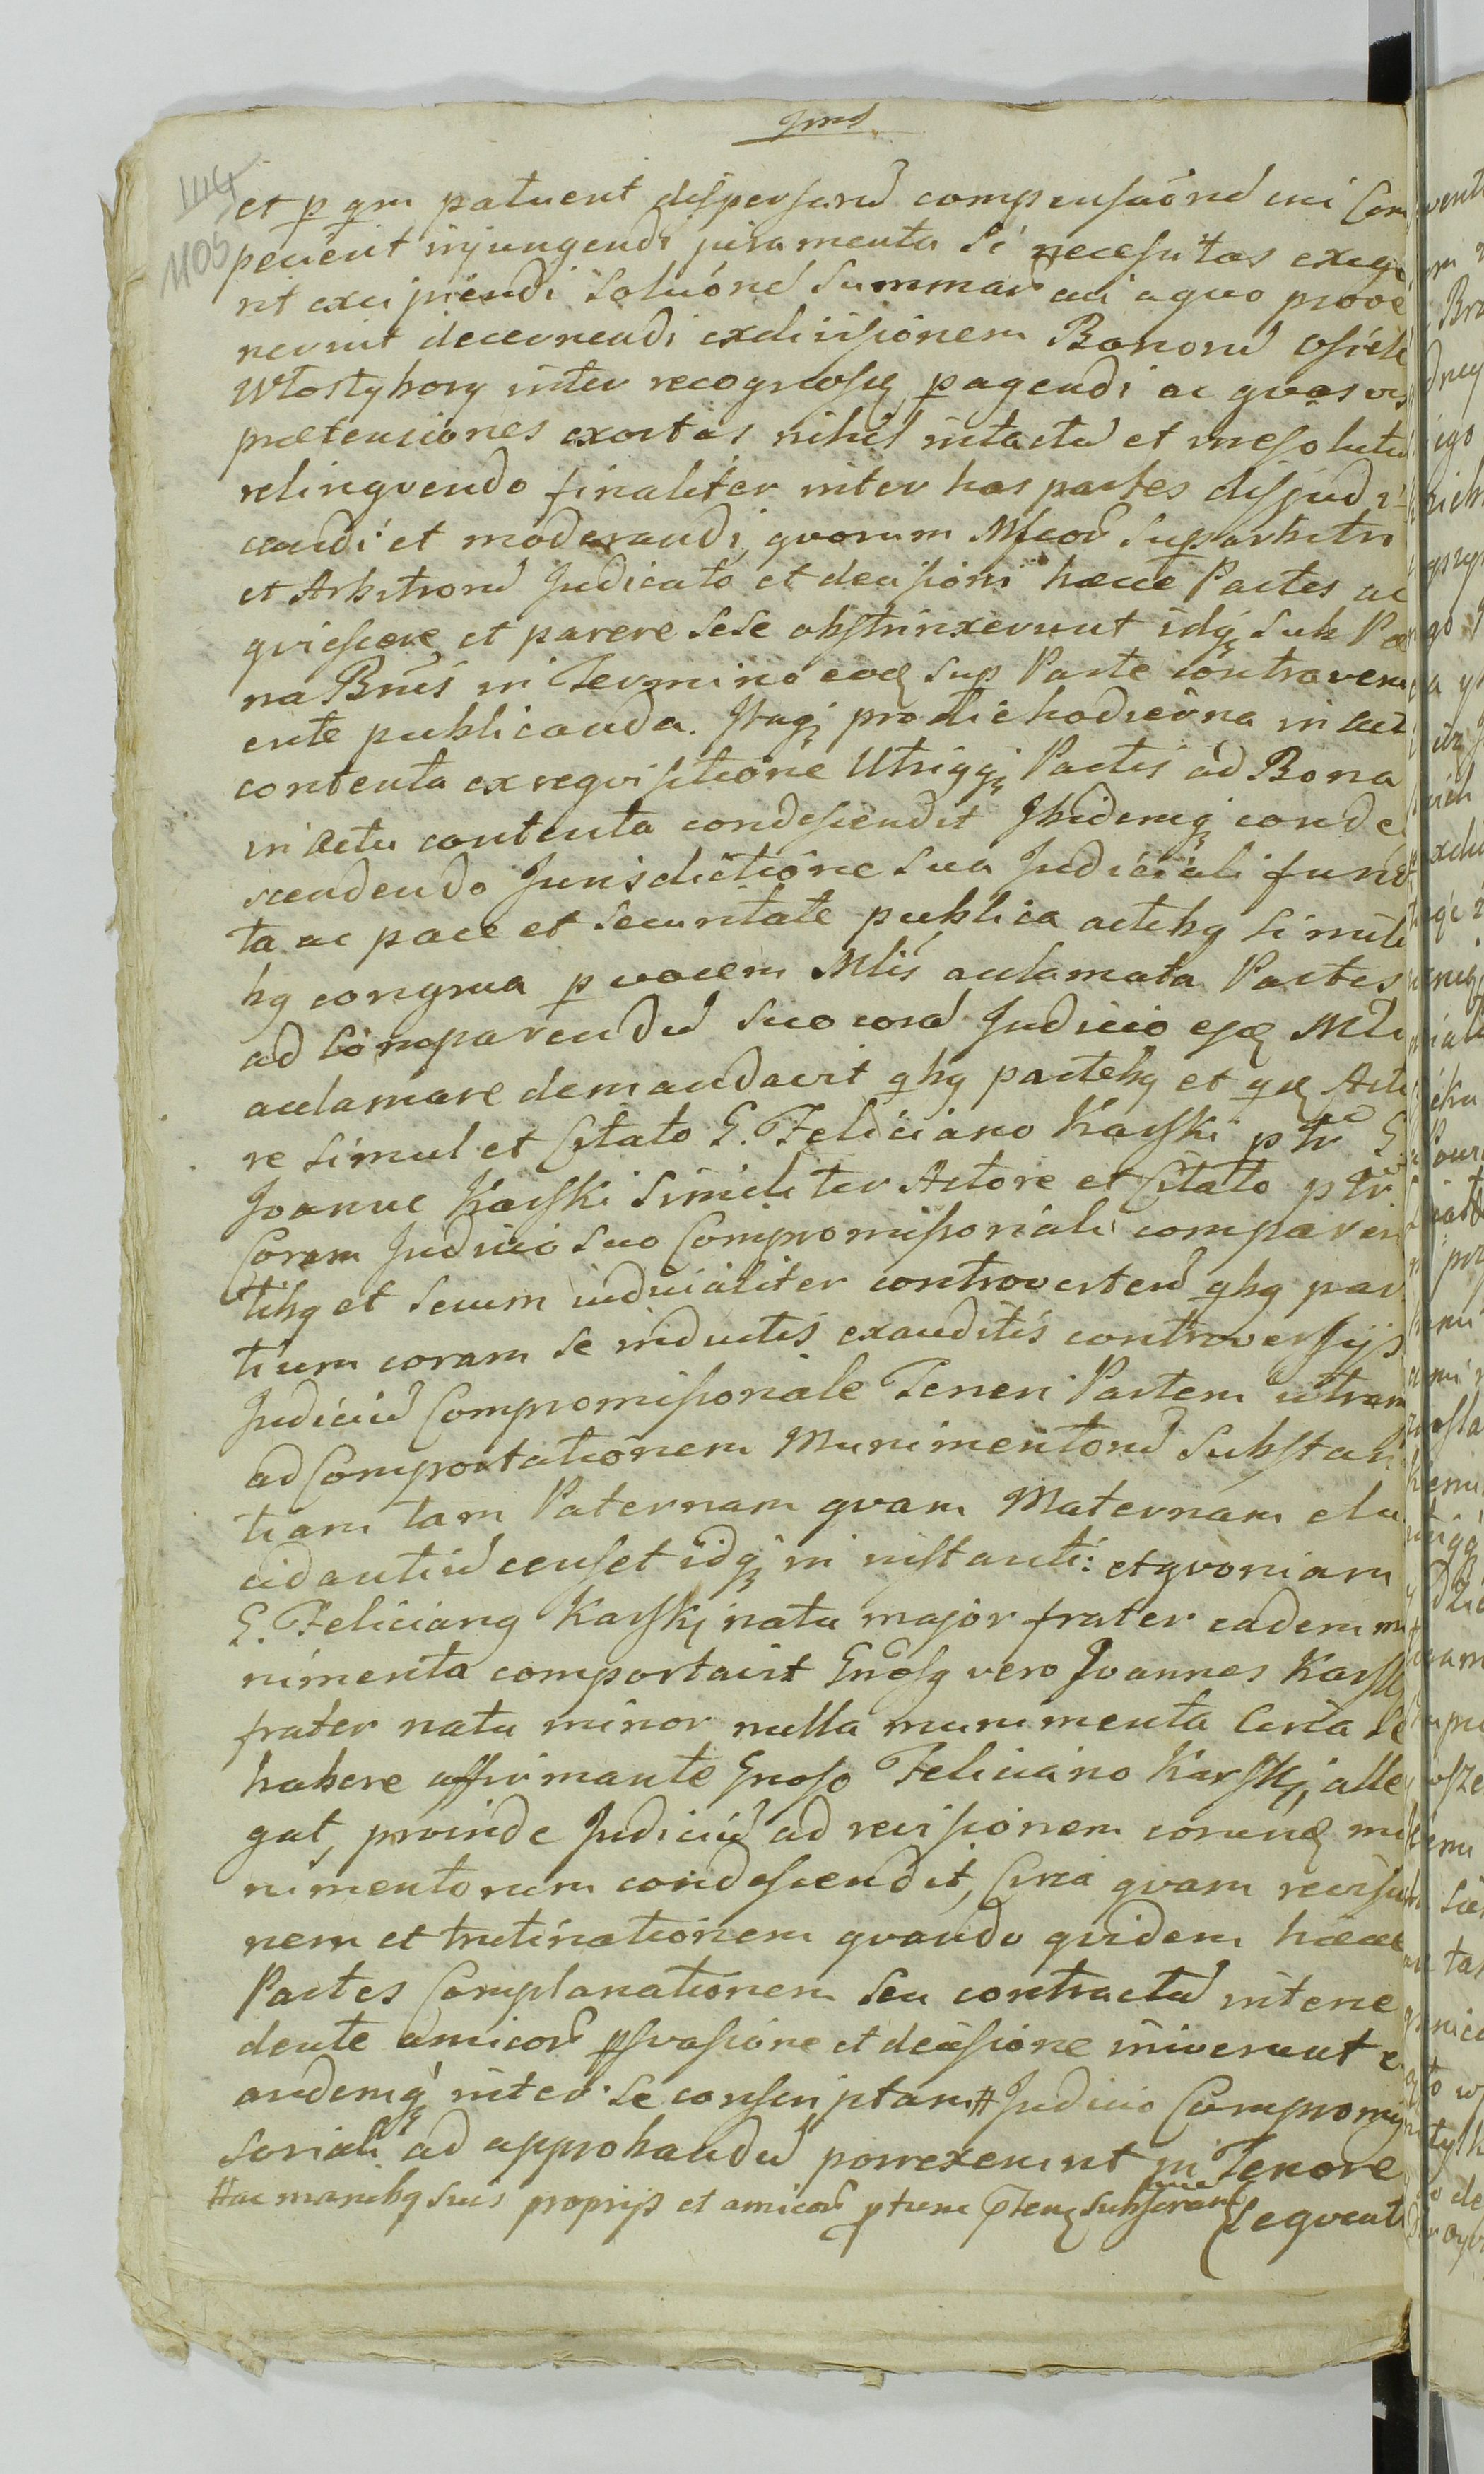 1114
1105
et p qm patuerit dispersand compensaónd cui Com
pecierit injungendi juramenta Si necessitas exege
rit excipiendi Solúónd Summar cui a quo prove
nerint decernendi exdivisionem Bonord
Włostybory inter recognosc pagendi ac quasvis
prætensiones exortas nihil intactū et irresolutū
relinquendo finaliter inter has partes disjudi
candi et moderandi, quorum Mfcor Suparbitri
et Arbitrord Judicato et decisioni hæcce Partes ac
quiescere et parere Sese obstrinxerunt idq Sub Pœ
na Bnis in Termino eod Sup Parte contraveni
ente publicanda. Itaq pro die hodierna in act
contenta ex requisitione Utriqq Partis ad Bona
in Actu contenta condescendit Ibidemq conde
scendendo Jurisdictione Sua Judiciali funda
ta ac pace et Securitate publica actibq Simili
bq congrua p vocem Mlis aclamata Partes
ad Comparendū Suo corā Judicio ejsd Mli
aclamare demandavit qbq partebq et qd Acto
re Simul et Citato G. Feliciano Karski ptr G.
Joanne Karski Similiter Actore et Citato ptr
Coram Judicio Suo Compromissoriali comparen
tibq et Secum judicialiter controvertend qbq par
tium coram Se inductis exauditis controversijs
Judiciū Compromissoriale Teneri Partem utram
ad Comportationem Munimentord Substan
tiam tam Paternam quam Maternam elu
cidantiū censet idq in instanti: et quoniam
G. Felicianq Karskj natu major frater eadem mu
nimenta comportavit Gnosq vero Joannes Karskj
frater natu minor nulla munimenta Circa Se
habere affirmante Gnoso Feliciano Karskj, alle
gat, proinde Judiciū ad revisionem eorund mu
nimentorum condescendit, Circa quam revisio
nem et trutinationem quando quidem hæcce
Partes Complanationem Seu contractū interce
dente amicor psvasione et decisione inierunt e
andemq inter Se conscriptam # Judicio Compromis
soriali ad approbandū porrexerunt in Tenore
Sequenti
# ac manibq Suis proprijs et amicor ptium Subscram